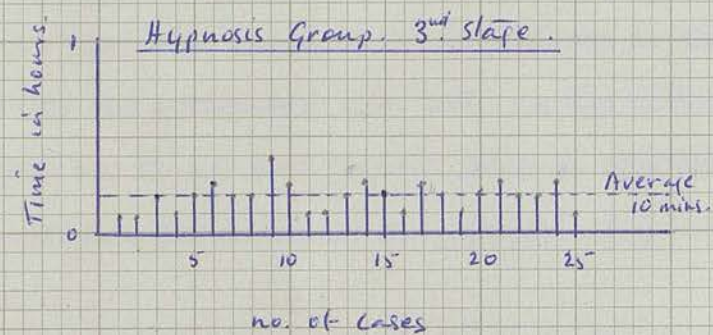 Hypnosis Group. 3rd Stage.
1
Time in hours.
Average
10 mins.
0
5 10 15 20 25
no. of cases